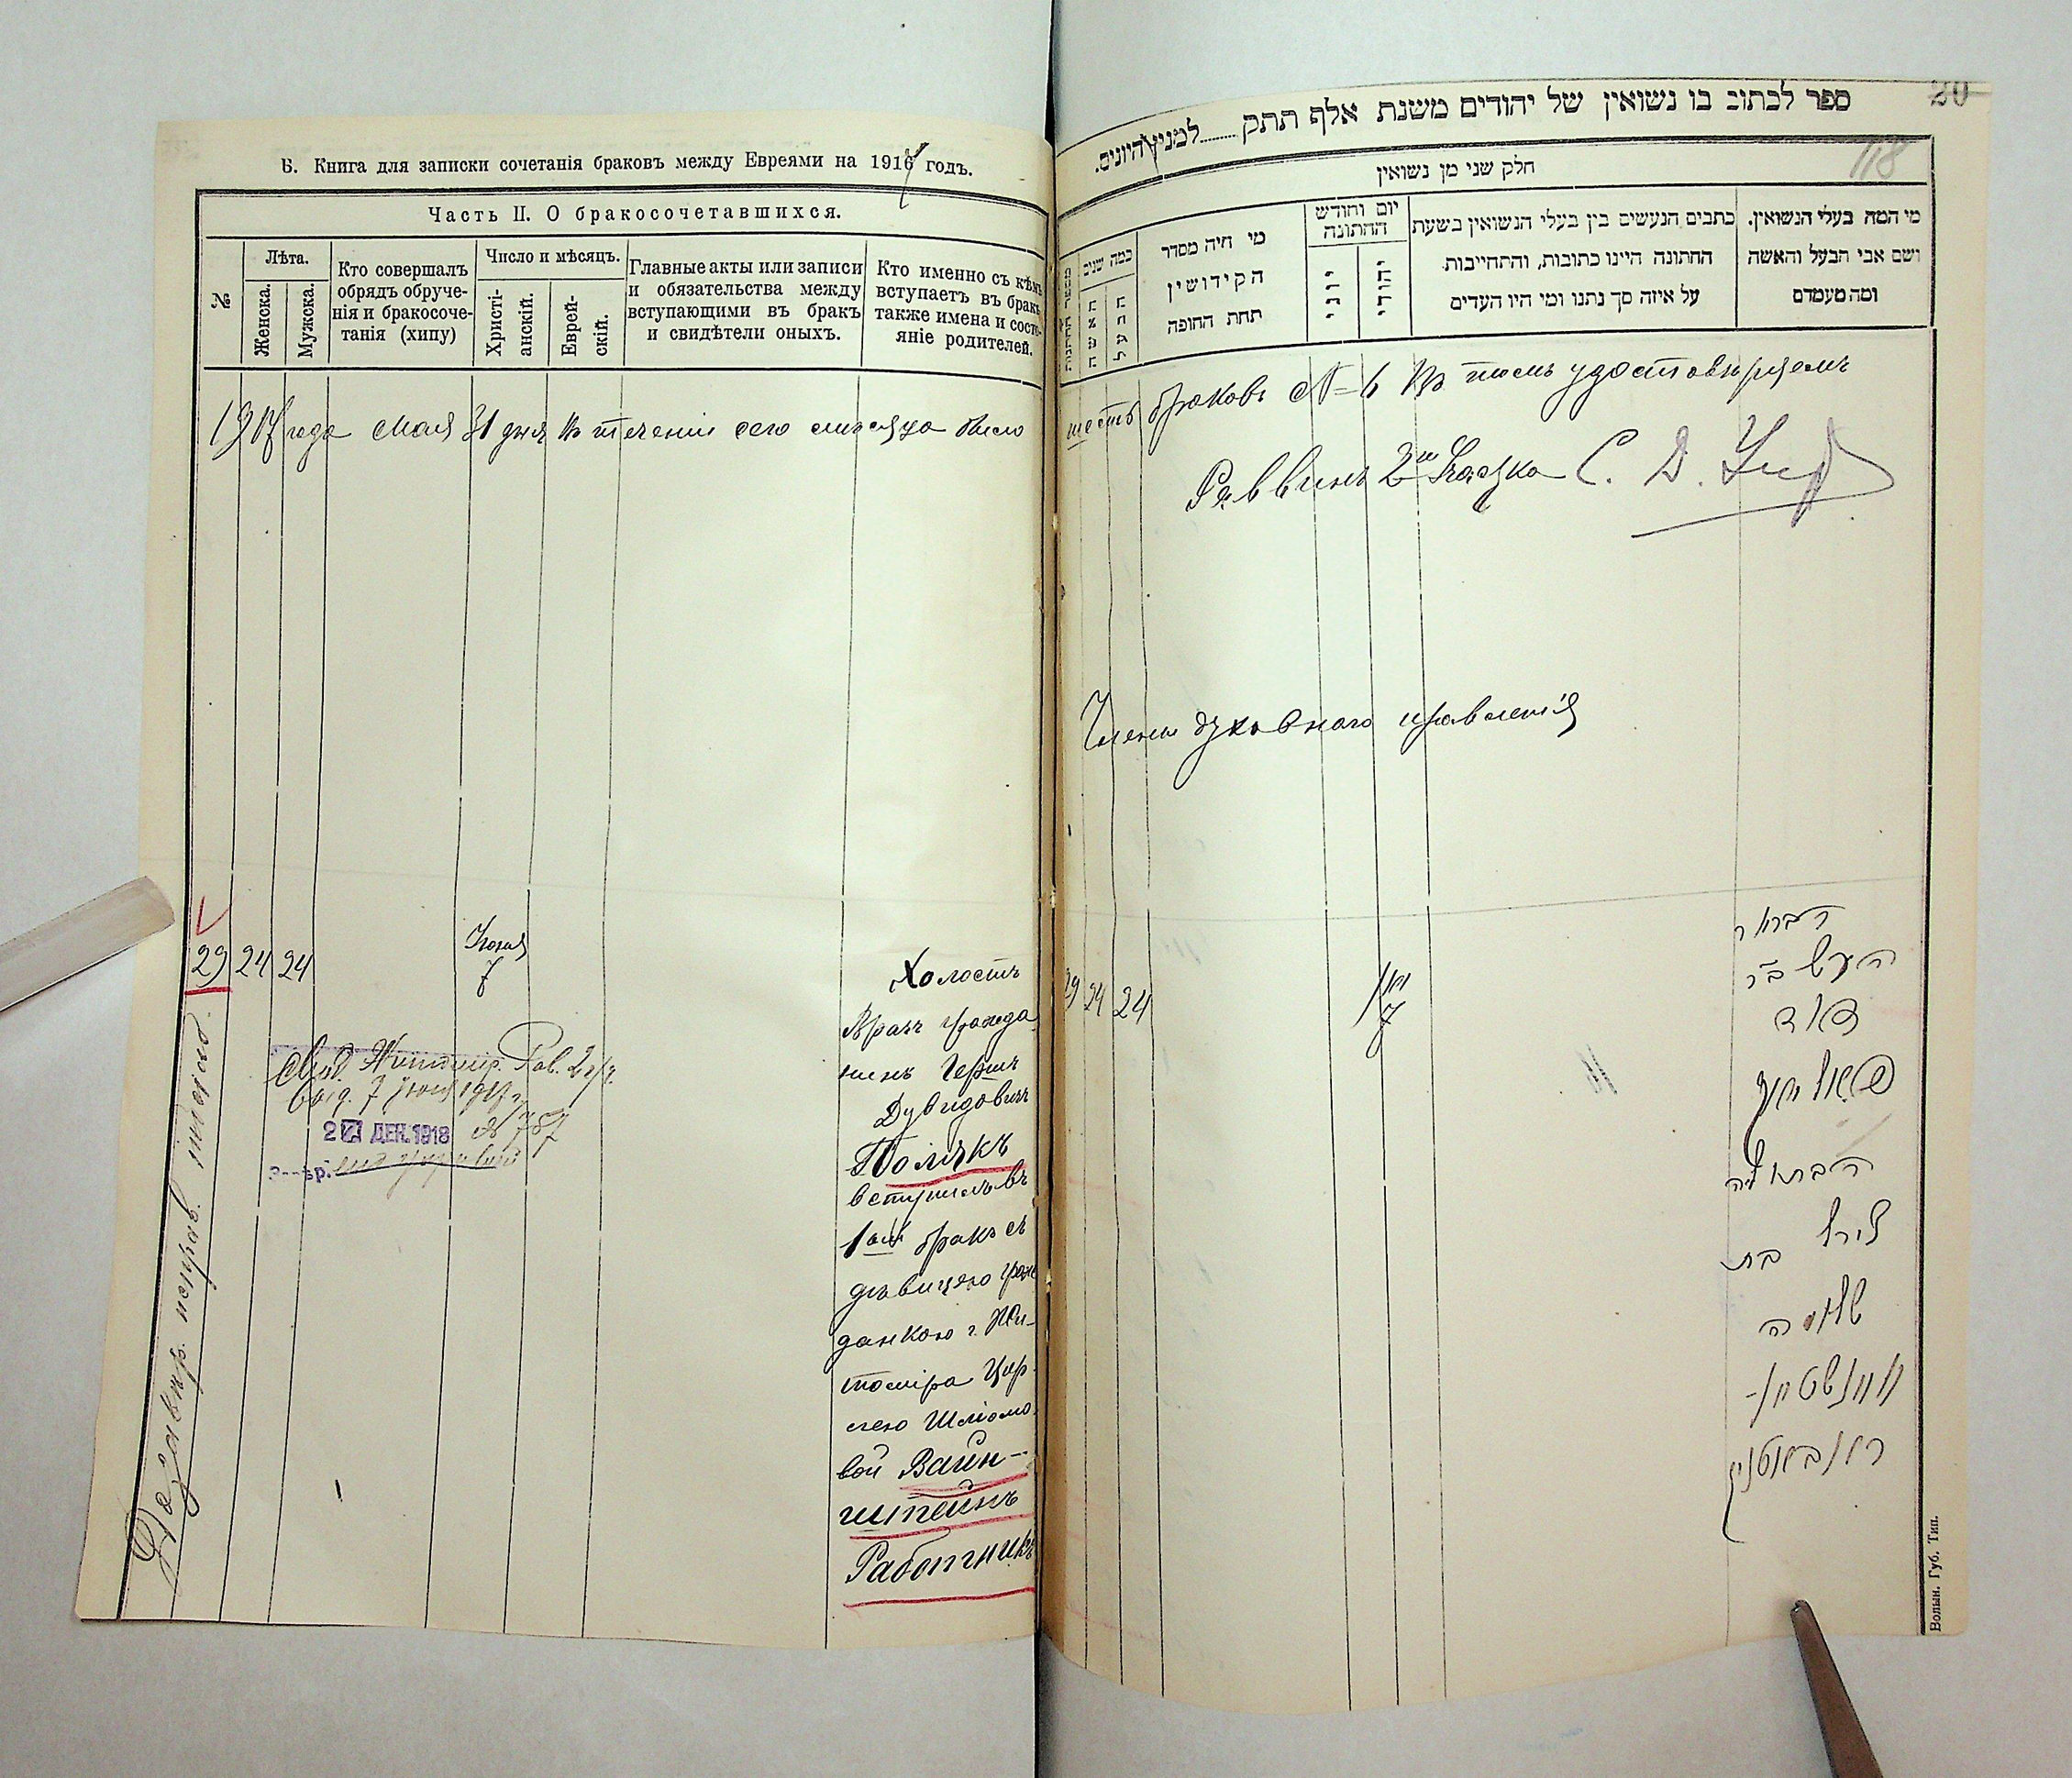 Б. Книга для записки сочетанія браковъ между Евреями на 1917 годъ.
Часть II. О бракосочетавшихся.
№
Лѣта.
Женска.
Мужска.
Кто совершалъ
обрядъ обруче-
нія и бракосоче-
танія (хипу)
Число и мѣсяцъ.
Христі-
анскій.
Еврей-
скій.
Главные акты или записи
и обязательства между
вступающими въ бракъ
и свидѣтели оныхъ.
Кто именно съ кѣмъ
вступаетъ въ бракъ
также имена и состо-
яніе родителей.
1917 года Мая 31 дня въ теченіи сего мѣсяца было
29 24 24
Іюня
7
Холостъ
гражда
нинъ Герш
Дувидовичъ
Полякъ
вступилъ въ
1ый бракъ съ
дѣвицею граж
данкою г. Жи-
томіра Цир
лею Шліомо
вой Вайн-
штейнъ
Работникъ
Свид. Житомир. Рав. 2 уч.
выд. 7 іюня 1917 г.
2 ДЕК. 1918 № 787
20
118
ספר לכתוב בו נשואין של יהודים משנת אלף תתק למנין היונים.
חלק שני מן נשואין
מספר החתונות
כמה שנים
האשה
הבעל
מי היה מסדר
הקידושין
תחת החופה
יום וחודש
החתונה
יוני
יהודי
כתבים הנעשים בין בעלי הנשואין בשעת
החתונה היינו כתובות, והתחייבות
על איזה סך נתנו ומי היו העדים
מי המה בעלי הנשואין.
ושם אבי הבעל והאשה
ומה מעמדם
шесть браковъ № 6 въ чемъ удостовѣряемъ
Раввинъ 2го участка С. Д.
Члены духовнаго правленія
29 24 24
7
הבחור
הערש ב״ר
דוד
פאליאק
הבתולה
צירל בת
שלמה
וויינשטיין
Волын. Губ. Тип.